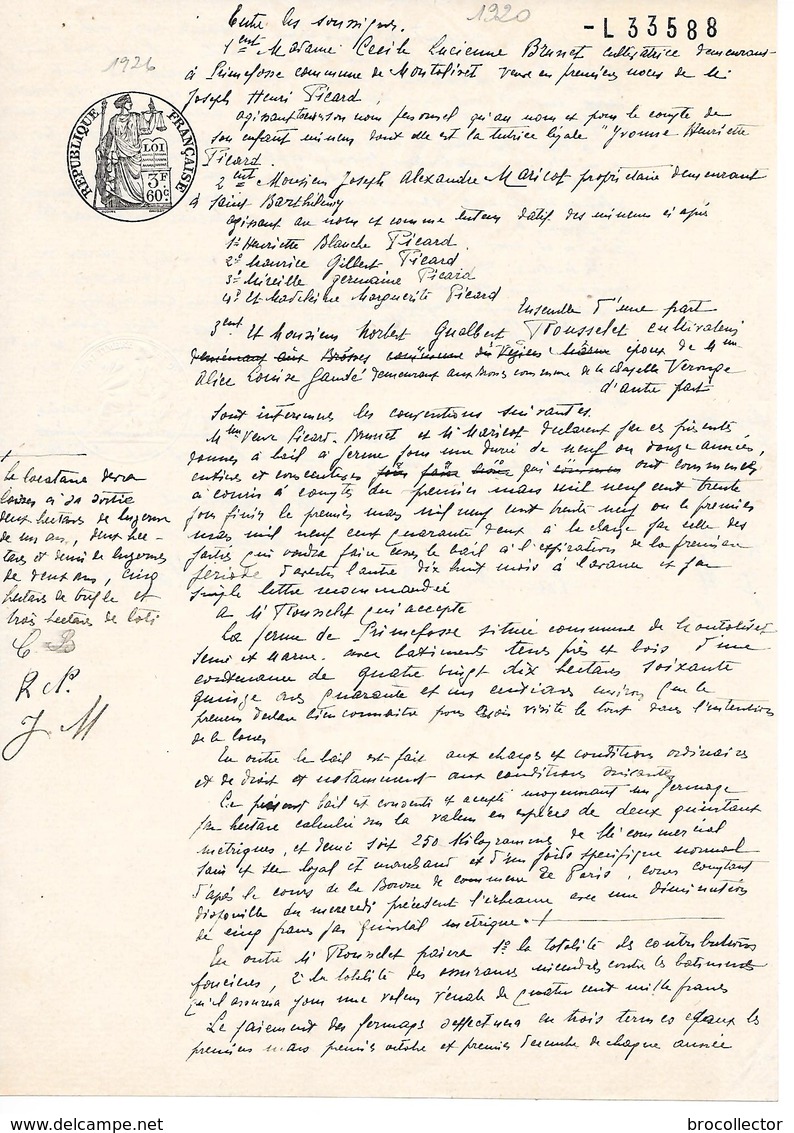 1920
- L 33588
1926
Entre les soussignés.
1ent Madame Cecile Lucienne Brunet cultivatrice demeurant
à Primefosse commune de Montolivet veuve en premières noces de M.
Joseph Henri Picard,
agissant tant en son nom personnel qu'au nom et pour le compte de
son enfant mineur dont elle est la tutrice légale "Yvonne Henriette
Picard.
2ent Monsieur Joseph Alexandre Maricot propriétaire demeurant
à Saint Barthélemy
agissant au nom et comme tuteur datif des mineurs ci après
1º Henriette Blanche Picard.
2º Maurice Gilbert Picard
3º Mireille germaine Picard
4º Et Madeleine Marguerite Picard
Ensemble d'une part
3ent Et Monsieur Norbert Gualbert Rousselet cultivateur
demeurant aux Brosses commune du époux de Mme
Alice Louise Gaudé demeurant aux Brosses commune de la Chapelle Veronge
d'autre part
RÉPUBLIQUE FRANÇAISE
LOI
3F
60c
Sont intervenues les conventions suivantes.
Mme Veuve Picard-Brunet et M Maricot declarent par ces présentes
donner à bail à ferme pour une durée de neuf ou douze années,
entières et consecutives qui ont commencé
à courir à compter du premier mars mil neuf cent trente
pour finir le premier mars mil neuf cent trente neuf ou le premier
mars mil neuf cent quarante deux à la charge par celle des
parties qui voudra faire cesser le bail à l'expiration de la première
période d'avertir l'autre dix huit mois à l'avance et par
simple lettre recommandée
a M Rousselet qui accepte
La ferme de Primefosse située commune de Montolivet
Seine et Marne. avec batiments terres prés et bois d'une
contenance de quatre vingt dix hectares soixante
quinze ares quarante et un centiares environ que le
preneur declare bien connaitre pour avoir visité le tout dans l'intention
de la louer
En outre le bail est fait aux charges et conditions ordinaires
et de droit et notamment aux conditions suivantes
Ce présent bail est consenti et accepté moyennant un fermage
par hectare calculé sur la valeur en espèces de deux quintaux
métriques, et demi soit 250 Kilogrammes de blé commercial
sain et sec loyal et marchand et d'un poids spécifique normal
d'après le cours de la Bourse de commerce de Paris, cours comptant
disponible du mercredi précédent l'échéance avec une diminution
de cinq francs par quintal métrique.
En outre M Rousselet paiera 1º la totalité des contributions
foncières, 2º la totalité des assurances incendies contre les batiments
qu'il assurera pour une valeur vénale de quatre cent mille francs
Le paiement des fermages s'effectuera en trois termes égaux les
premier mars premier octobre et premier decembre de chaque année
Le locataire devra
laisser à sa sortie
deux hectares de luzerne
de un an, deux hec-
tares et demi de luzerne
de deux ans, cinq
hectares de trefle et
trois hectares de
C B
R N.
J. M
delcampe.com
brocollector